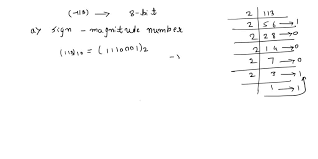 (-113) → 8-bit
a) sign - magnitude number
(113)10 = (1110001)2
-1
2 | 113
2 | 56 → 1
2 | 28 → 0
2 | 14 → 0
2 | 7 → 0
2 | 3 → 1
1 → 1